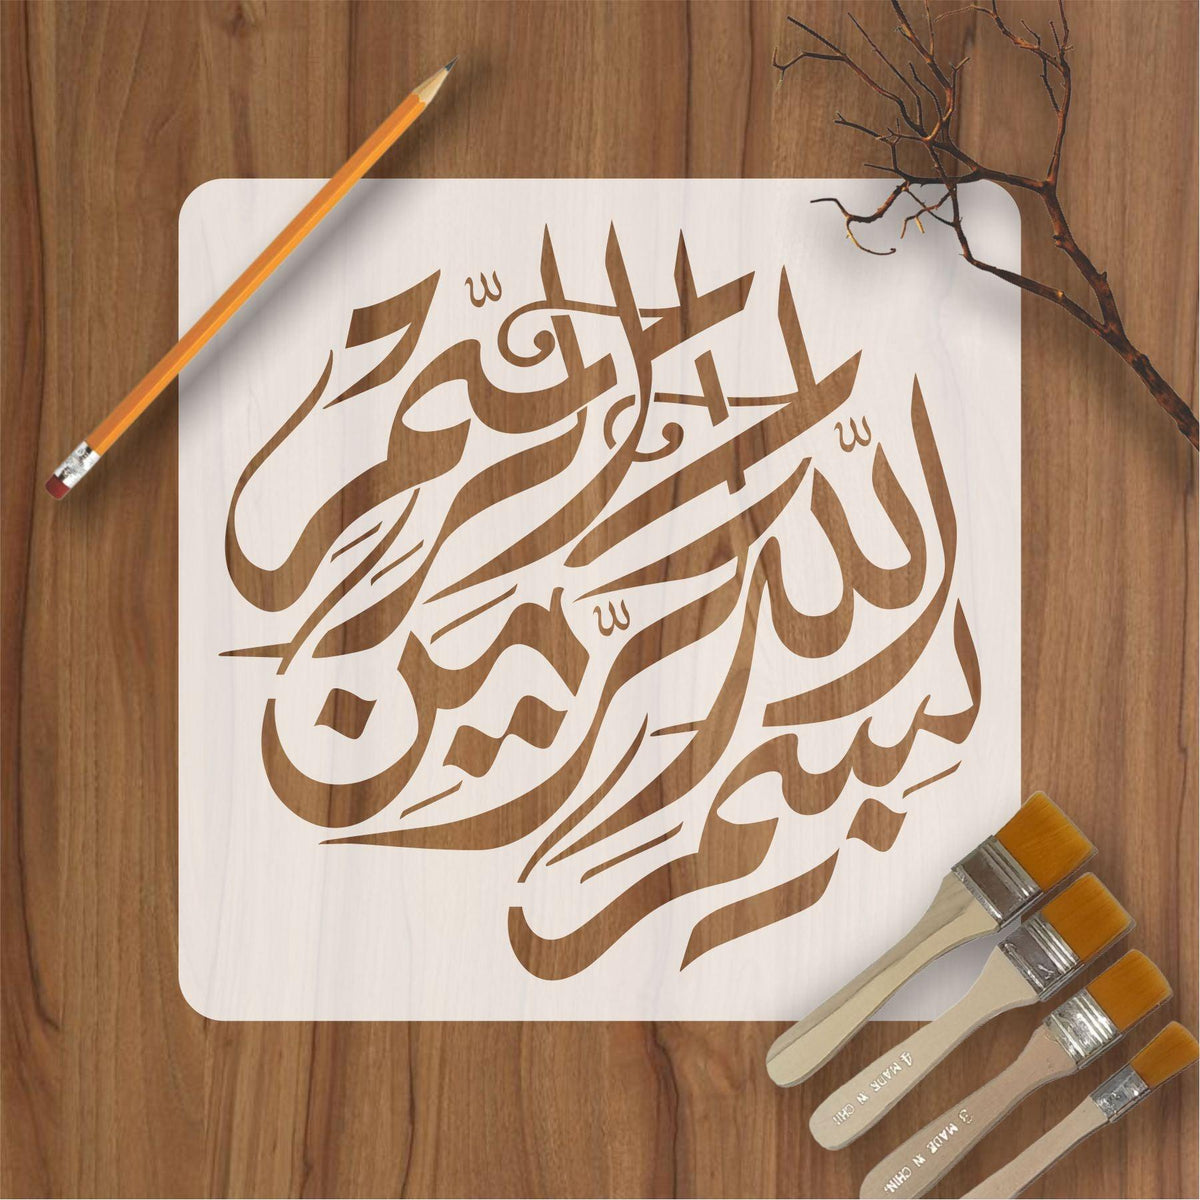 بسم الله الرحمن الرحيم
4 MADE IN CHI
3 MADE IN CHIN.